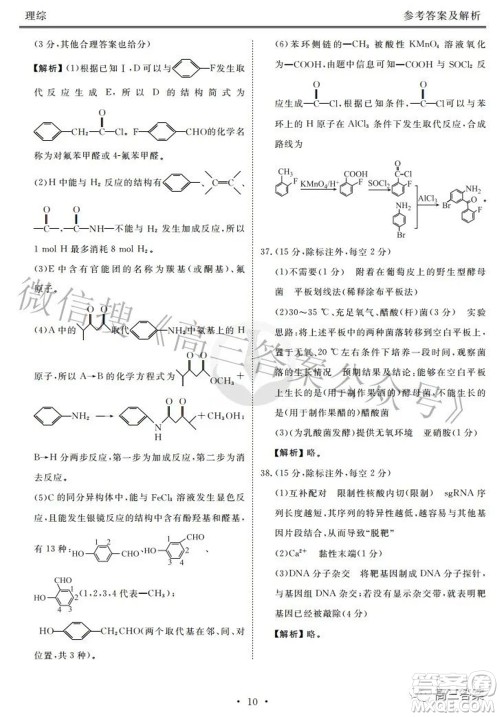 理综
参考答案及解析
(3分,其他合理答案也给分)
【解析】(1)根据已知Ⅰ,D可以与 —F发生取
代反应生成 E,所以 D 的结构简式为
—CH₂—C—Cl。F— —CHO的化学名
O
称为对氟苯甲醛或4-氟苯甲醛。
(2)H中能与 H₂ 反应的结构有 、 、
O
—C—,—C—NH—不能与 H₂ 发生加成反应,所以
1 mol H 最多消耗 8 mol H₂。
(3)E中含有官能团的名称为羰基(或酮基)、氟
原子。
(4)A中的 取代 —NH₂中氨基上的 H
O O
原子,所以A→B的化学方程式为 OCH₃+
—NH₂ → + CH₃OH;
B→H分两步反应,第一步加成反应,第二步消去
反应。
(5)C的同分异构体中,能与FeCl₃溶液发生显色
反应,且能发生银镜反应的含有酚羟基和醛基,
有13种: HO CHO
1 2 3 4
CHO HO
(1,2,3,4代表—CH₃)、
HO— —CH₂CHO(两个取代基在邻、间、对
位置),共13种。
(6)苯环侧链的—CH₃ 被酸性 KMnO₄ 溶液氧化
为—COOH,由题中信息可知—COOH与SOCl₂反
O
应生成—C—Cl,根据已知条件,—C—Cl 可与苯
环上的 H 原子在 AlCl₃ 条件下发生取代反应,合成
路线为
CH₃ F KMnO₄/H⁺ COOH F SOCl₂ O CCl F NH₂ Br AlCl₃ NH₂ Br O F
37.(15分,除标注外,每空2分)
(1)不需要灭菌 附着在葡萄皮上的野生型酵母
菌 平板划线法(稀释涂布平板法)
(2)30~35 ℃、氧气 醋酸(杆)菌(1分) 实验
思路:将两种菌落转移到空白平板上,将空白平板
放置于无氧、20 ℃左右条件下培养一段时间,观察
菌落的生长情况 预期结果及结论:能在空白平板上
生长的是(用于制作果酒的)酵母菌,不能生长的
是(用于制作果醋的)醋酸菌
(3)(为乳酸菌发酵)提供无氧环境 亚硝胺(1分)
【解析】略。
38.(15分,除标注外,每空2分)
(1)互补配对 限制性核酸内切(限制) sgRNA序
列长度越短,其特异性越差,与其他非目标DNA结
合的概率增大,造成“脱靶”
(2)Ca²⁺ 黏性末端(1分)
(3)DNA分子杂交 将靶基因制成DNA分子探针,
与基因组DNA杂交,观察是否出现杂交带,确定靶
基因已经被敲除(3分)
【解析】略。
· 10 ·
微信搜《高三答案公众号》
高三答案